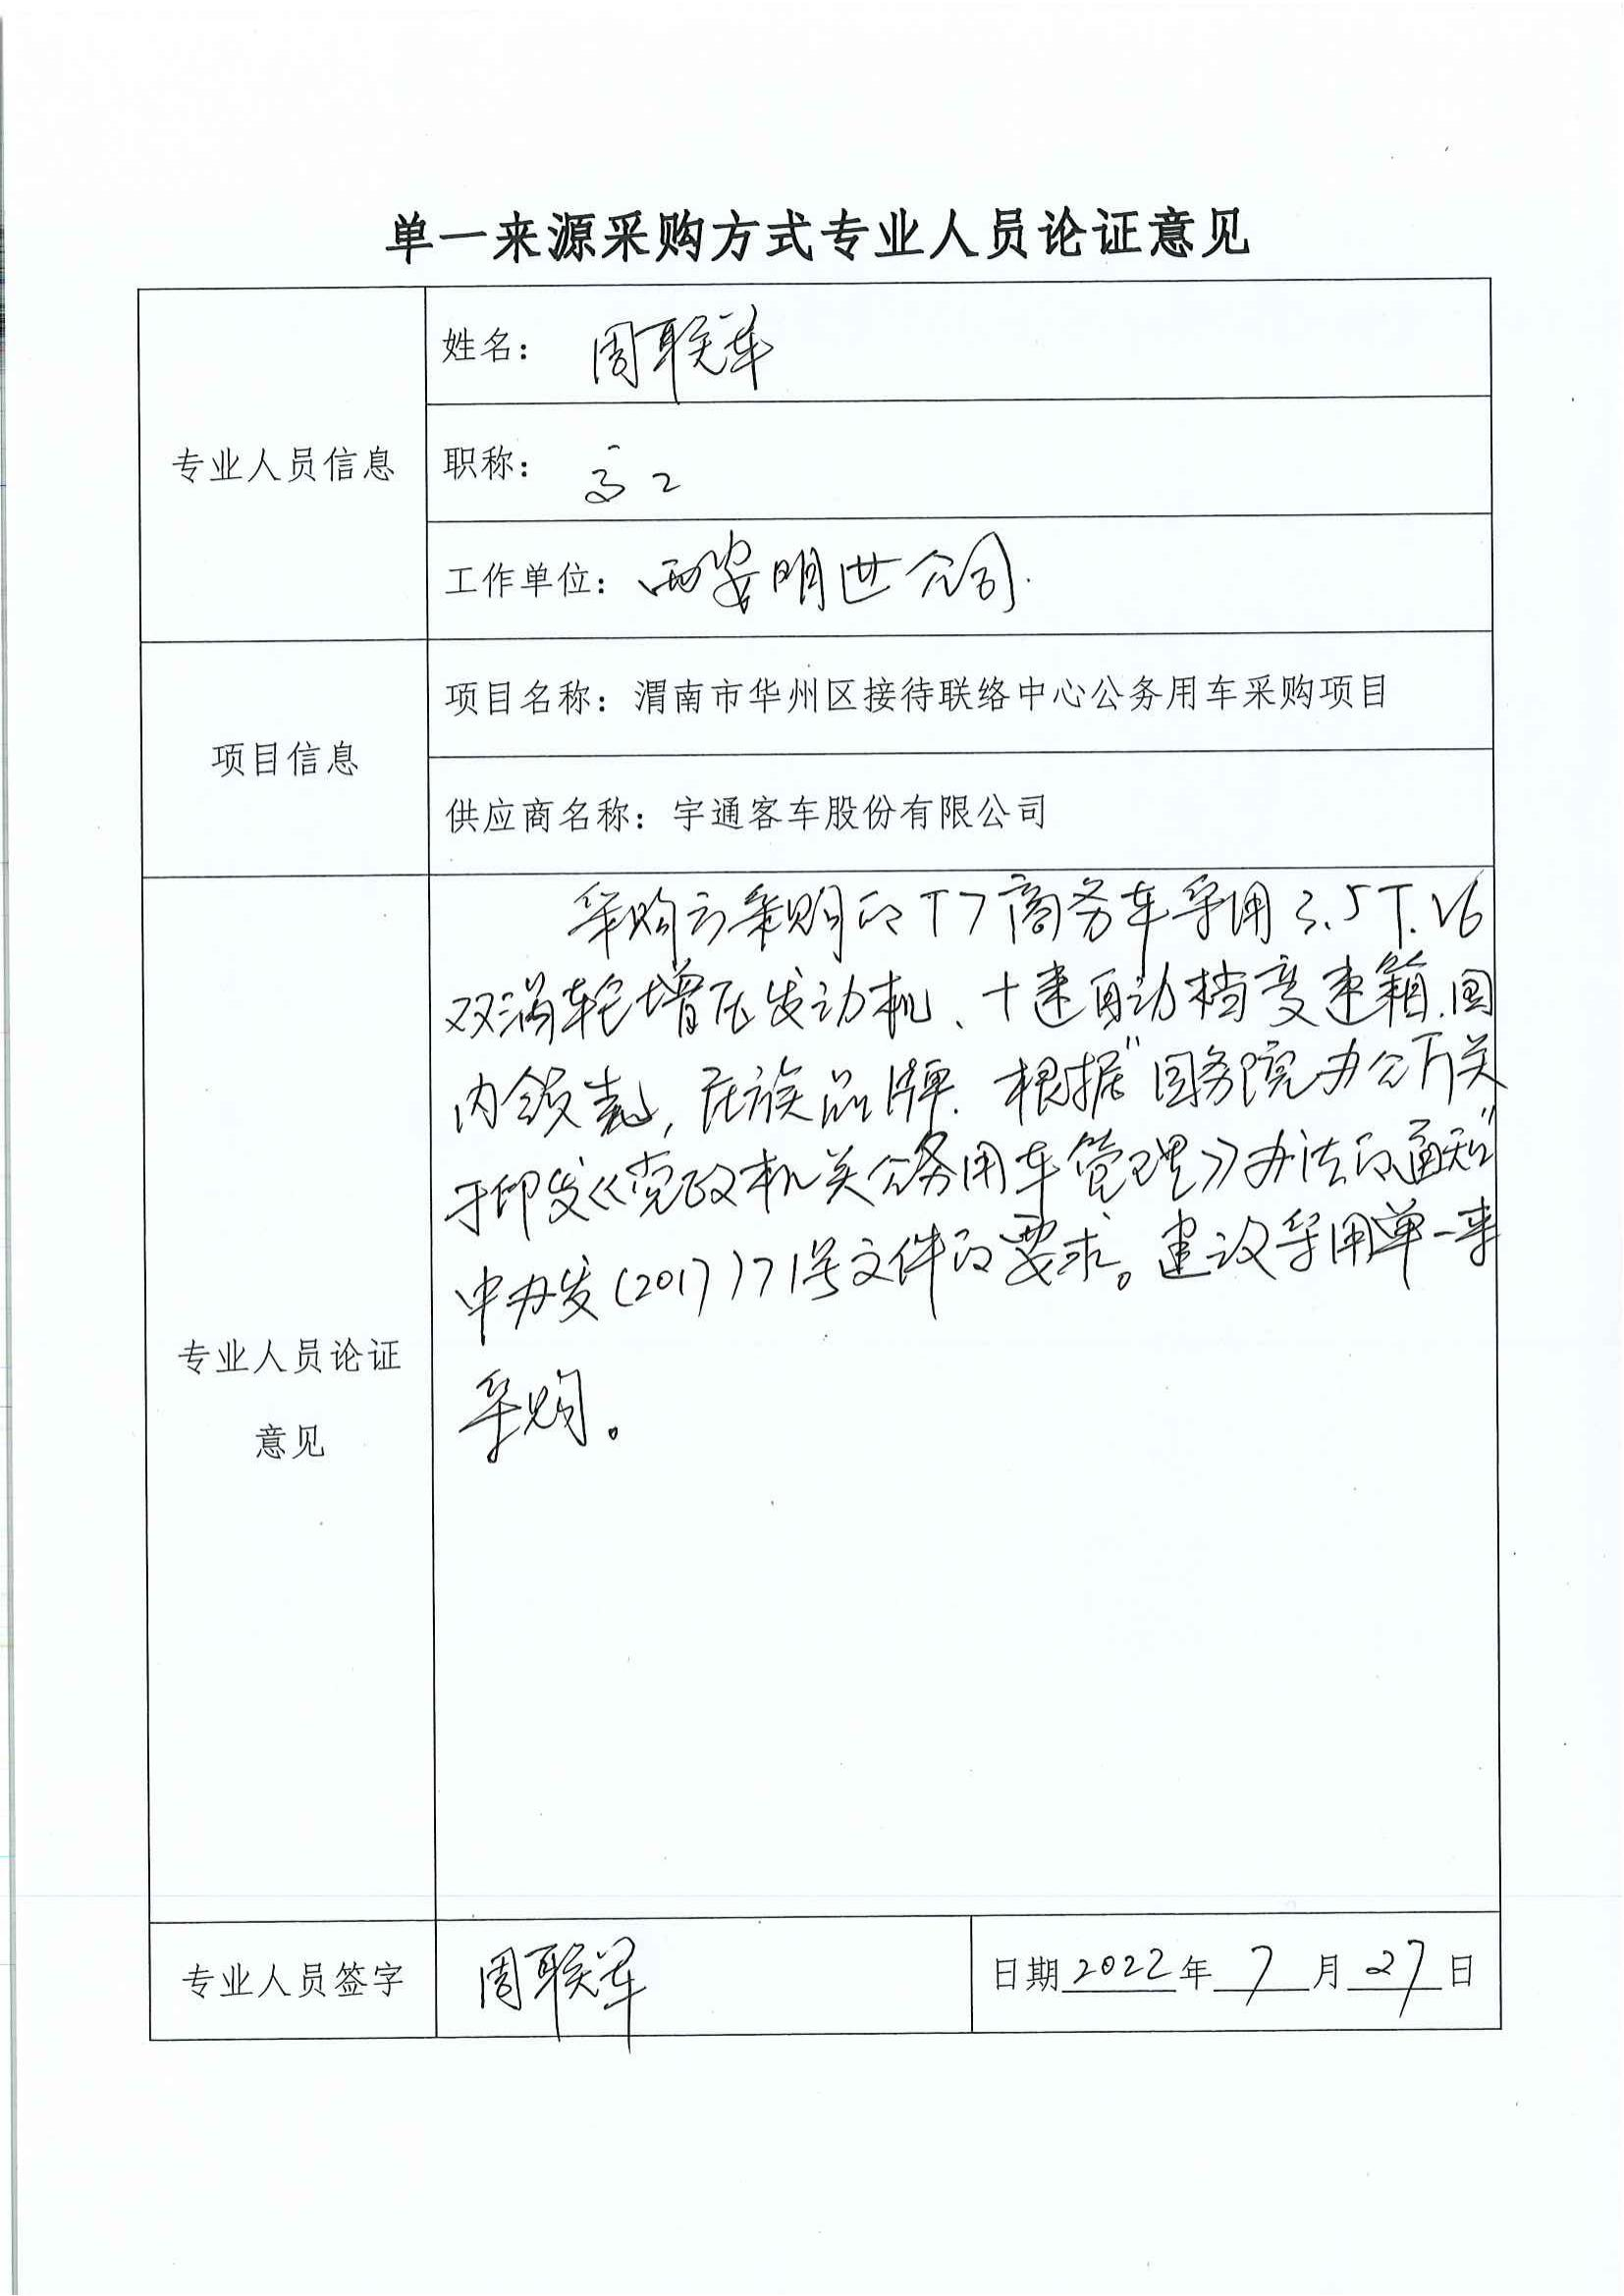 单一来源采购方式专业人员论证意见
专业人员信息
姓名：周联军
职称：高工
工作单位：西安明世公司.
项目信息
项目名称：渭南市华州区接待联络中心公务用车采购项目
供应商名称：宇通客车股份有限公司
专业人员论证
意见
采购方采购的T7商务车采用3.5T.V6
双涡轮增压发动机、十速自动档变速箱.国
内领先，民族品牌.根据"国务院办公厅关
于印发《党政机关公务用车管理》办法的通知"
中办发(2017)71号文件的要求。建议采用单一来
采购。
专业人员签字
周联军
日期2022年7月27日